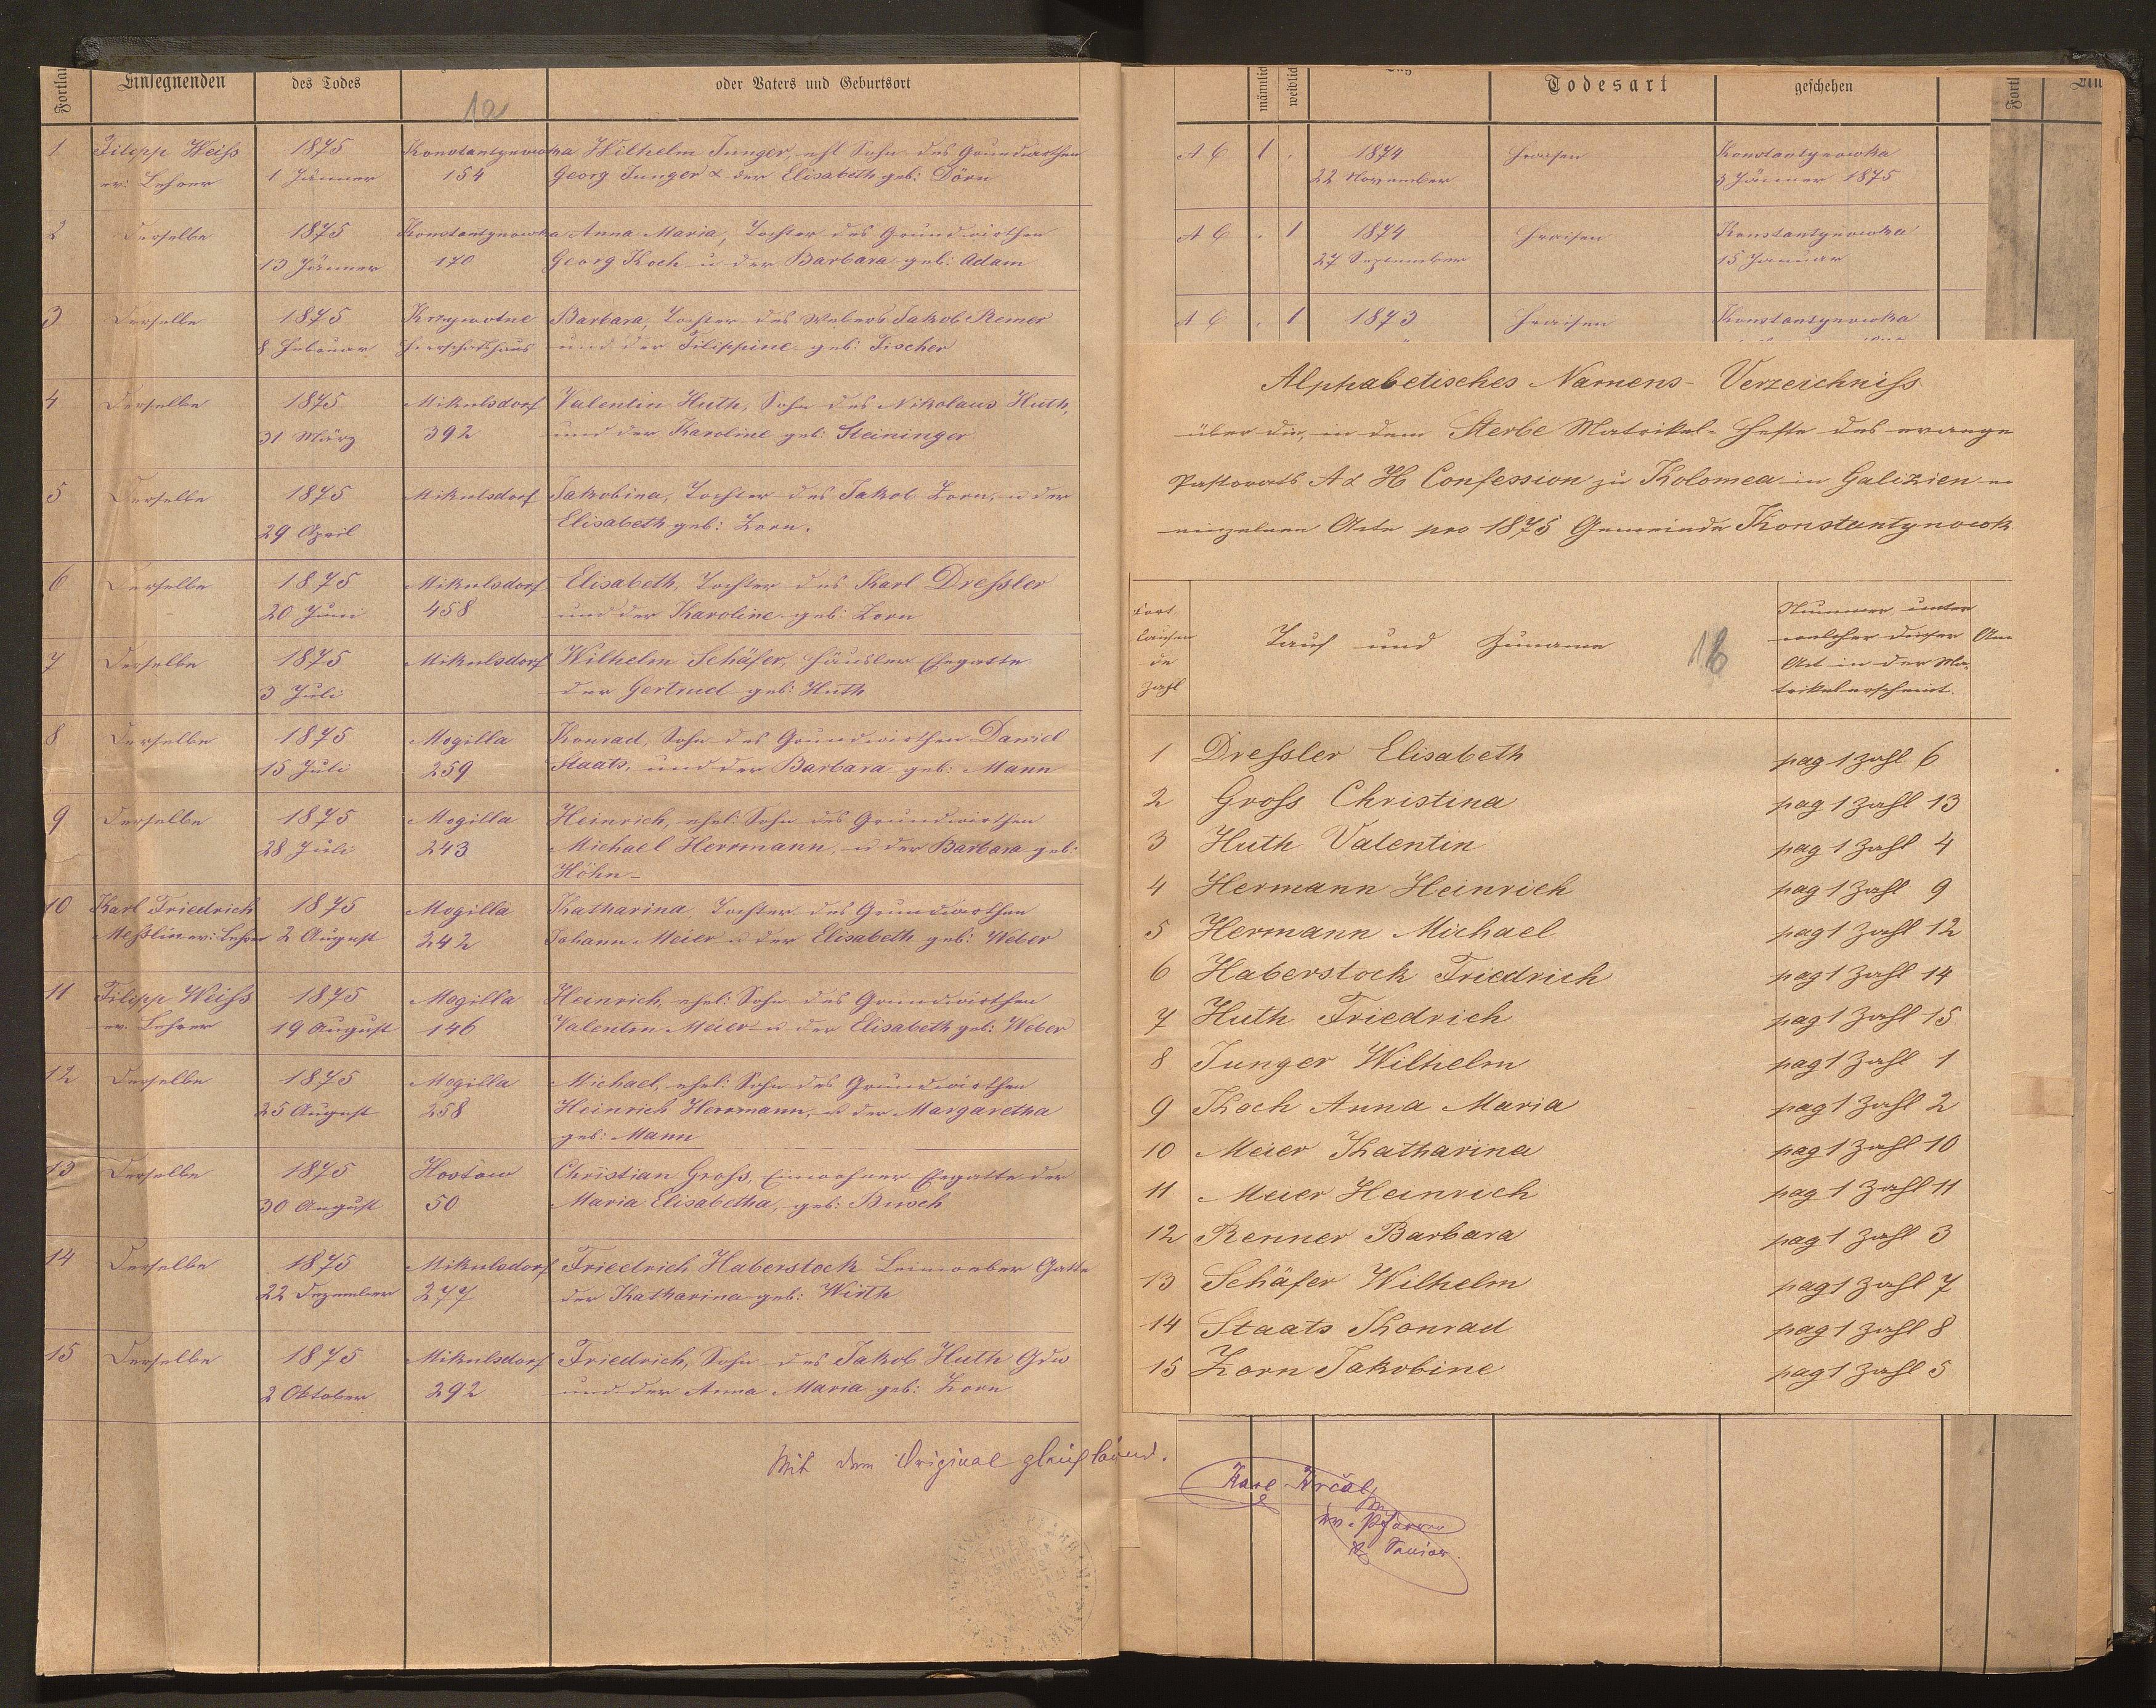 Fortlau
Einsegnenden
des Todes
oder Vaters und Geburtsort
12
1 Filipp Weiss 1875 Konstantynowka Wilhelm Junger, ehl Sohn des Grundwirthen
ev: Lehrer 1 Jänner 154 Georg Junger & der Elisabeth geb: Dörn
2 Derselbe 1875 Konstantynowka Anna Maria, Tochter des Grundwirthen
13 Jänner 170 Georg Koch u der Barbara geb: Adam
3 Derselbe 1875 Krzywotne Barbara, Tochter des Webers Jakob Remer
8 Februar Herrschafthaus und der Filippine geb: Fischer
4 Derselbe 1875 Mikulsdorf Valentin Huth, Sohn des Nikolaus Huth,
31 März 392 und der Karoline geb: Steininger
5 Derselbe 1875 Mikulsdorf Jakobina, Tochter des Jakob Zorn, u der
29 April Elisabeth geb: Zorn.
6 Derselbe 1875 Mikulsdorf Elisabeth, Tochter des Karl Dressler
20 Juni 458 und der Karoline geb: Zorn
7 Derselbe 1875 Mikulsdorf Wilhelm Schäfer, Häusler Ehegatte
3 Juli der Gertrud geb: Huth
8 Derselbe 1875 Mogilla Konrad, Sohn des Grundwirthen Daniel
15 Juli 259 Staats, und der Barbara geb: Mann
9 Derselbe 1875 Mogilla Heinrich, ehel: Sohn des Grundwirthen
28 Juli 243 Michael Herrmann, u der Barbara geb:
Höhn
10 Karl Friedrich 1875 Mogilla Katharina, Tochter des Grundwirthen
Messlin ev: Lehrer 2 August 242 Johann Meier u der Elisabeth geb: Weber
11 Filipp Weiss 1875 Mogilla Heinrich, ehel: Sohn des Grundwirthen
ev. Lehrer 19 August 146 Valentin Meier u der Elisabeth geb: Weber
12 Derselbe 1875 Mogilla Michael, ehel: Sohn des Grundwirthen
25 August 258 Heinrich Herrmann, u der Margaretha
geb: Mann
13 Derselbe 1875 Hostow Christian Gross, Einwohner Ehegatte der
30 August 50 Maria Elisabetha, geb: Busch
14 Derselbe 1875 Mikulsdorf Friedrich Haberstock Leinweber Gatte
22 Dezember 277 der Katharina geb: Wirth
15 Derselbe 1875 Mikulsdorf Friedrich, Sohn des Jakob Huth Gdw
2 Oktober 292 und der Anna Maria geb: Zorn
Mit dem Original gleichlautend.
männlich
weiblich
Tag
Todesart
geschehen
Fortl
Ein
A C 1 . 1874 Fraisen Konstantynowka
22 November 3 Jänner 1875
A C . 1 1874 Fraisen Konstantynowka
27 September 15 Januar
A C . 1 1873 Fraisen Konstantynowka
Alphabetisches Namens-Verzeichniss
über die, in dem Sterbe Matrikel-Hefte des evange
Pastorats A & H Confession zu Kolomea in Galizien
einzelnen Acte pro 1875 Gemeinde Konstantynowk
Fort
laufen
de
Zahl
Tauf und Zuname
16
Nummer unter
welcher dieser
Act in der Ma-
trikel erscheint.
An
1 Dressler Elisabeth pag 1 Zahl 6
2 Gross Christina pag 1 Zahl 13
3 Huth Valentin pag 1 Zahl 4
4 Hermann Heinrich pag 1 Zahl 9
5 Hermann Michael pag 1 Zahl 12
6 Haberstock Friedrich pag 1 Zahl 14
7 Huth Friedrich pag 1 Zahl 15
8 Junger Wilhelm pag 1 Zahl 1
9 Koch Anna Maria pag 1 Zahl 2
10 Meier Katharina pag 1 Zahl 10
11 Meier Heinrich pag 1 Zahl 11
12 Renner Barbara pag 1 Zahl 3
13 Schäfer Wilhelm pag 1 Zahl 7
14 Staats Konrad pag 1 Zahl 8
15 Zorn Jakobine pag 1 Zahl 5
Karl Krčal
ev. Pfarrer
& Senior.